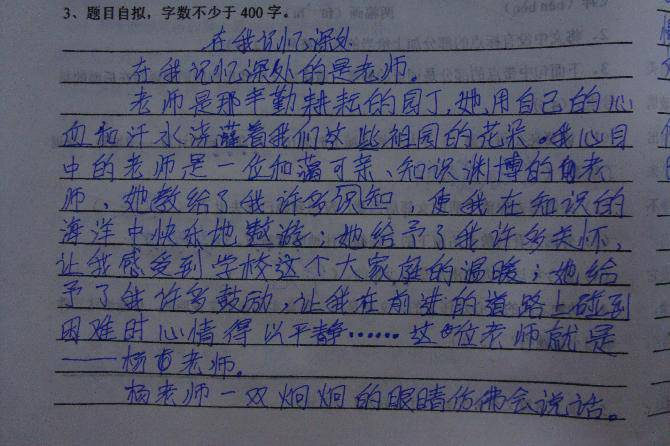 3、题目自拟，字数不少于400字。
在我记忆深处
在我记忆深处的是老师。
老师是那辛勤耕耘的园丁，她用自己的心
血和汗水浇灌着我们这些祖园的花朵。我心目
中的老师是一位和蔼可亲、知识渊博的老
师，她教给了我许多识知 使我在知识的
海洋中快乐地遨游；她给予了我许多关怀，
让我感受到学校这个大家庭的温暖；她给
予了我许多鼓励，让我在前进的道路上碰到
困难时心情得以平静……这位老师就是
——杨老师。
杨老师一双炯炯的眼睛仿佛会说话。